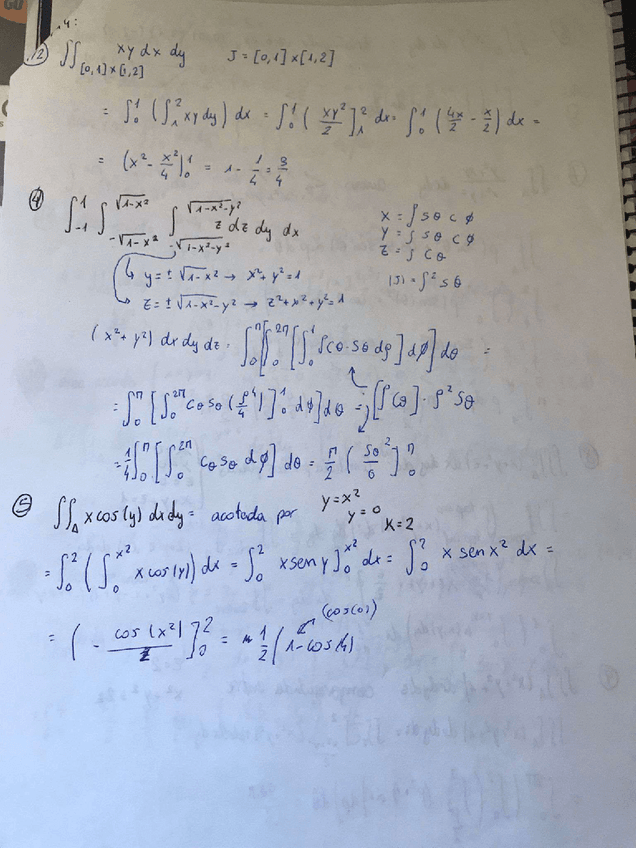 4:
2) ∬[0,1]x[1,2] xy dx dy J = [0,1]x[1,2]
= ∫₀¹ (∫₁² xy dy) dx = ∫₀¹ ( xy²/2 ]₁² dx = ∫₀¹ ( 4x/2 - x/2 ) dx =
= (x² - x²/4 )₀¹ = 1 - 1/4 = 3/4
④ ∫₋₁¹ ∫_{-√1-x²}^{√1-x²} ∫_{-√1-x²-y²}^{√1-x²-y²} z dz dy dx
x = ρ sθ cϕ
y = ρ sθ cϕ
z = ρ cθ
|J| = ρ² sθ
↳ y = ± √1-x² → x²+y²=1
z = ± √1-x²-y² → z²+x²+y²=1
(x²+y²) dx dy dz = ∫₀^π [∫₀^2π [∫₀¹ ρcθ·sθ dρ] dϕ] dθ =
= ∫₀^π [∫₀^2π cθ sθ (ρ⁴/4)]₀¹ dϕ] dθ = ; [ρ cθ] · ρ² sθ
= 1/4 ∫₀^π [∫₀^2π cθ sθ dϕ] dθ = π/2 ( sθ²/6 ]₀^π
⑤ ∬_Δ x cos(y) dx dy = acotada por y = x²
y = 0
x = 2
= ∫₀² (∫₀^x² x cos(y)) dx = ∫₀² x sen y ]₀^x² dx = ∫₀² x sen x² dx =
(cos(0))
= ( - cos(x²)/2 ]₀² = 1/2 (1 - cos(4)